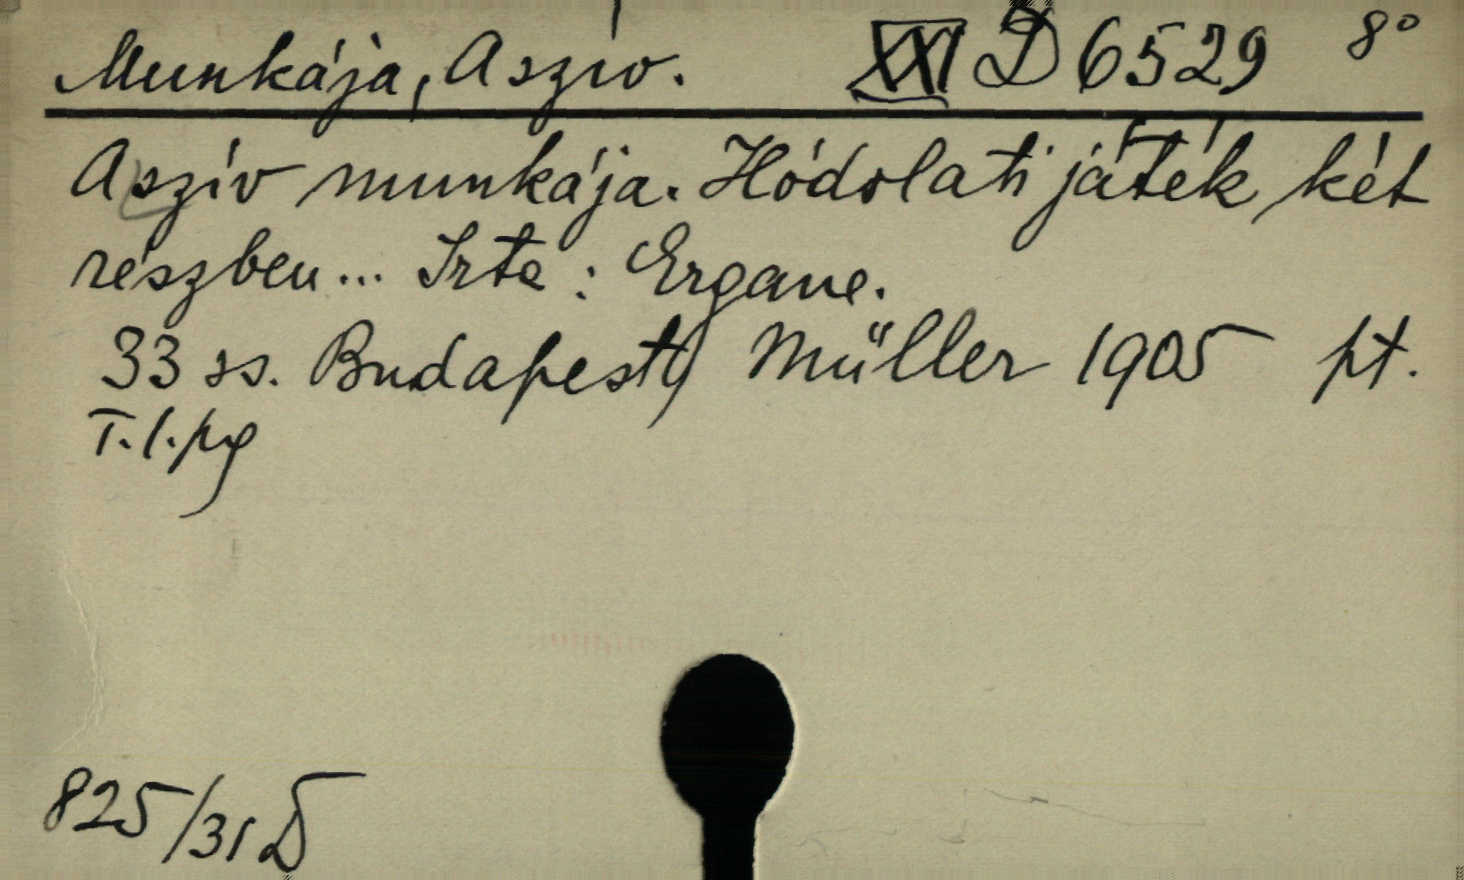 Munkája, A szív. XXI D 6529 8°
A szív munkája. Hódolati játék két
részben... Irta: Ergane.
33 ss. Budapest, Müller 1905 pt.
T. l. pg
825/31 D